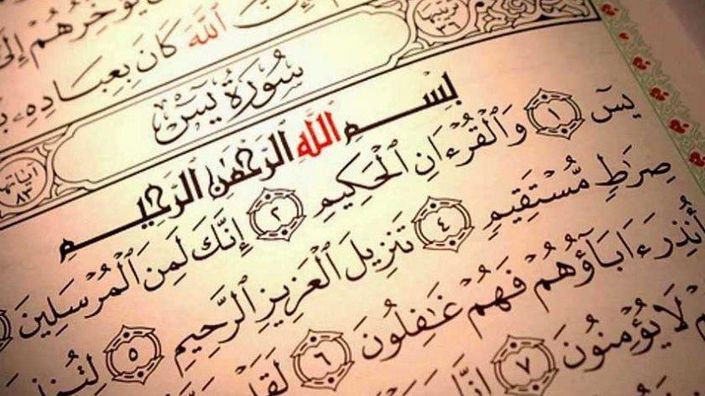 يُؤَخِّرُهُمْ إِلَىٰ
ٱللَّهَ كَانَ بِعِبَادِهِۦ
سُورَةُ يسٓ
ءاياتها ٨٣
بِسْمِ ٱللَّهِ ٱلرَّحْمَٰنِ ٱلرَّحِيمِ
يسٓ ١ وَٱلْقُرْءَانِ ٱلْحَكِيمِ ٢ إِنَّكَ لَمِنَ ٱلْمُرْسَلِينَ
صِرَٰطٍ مُّسْتَقِيمٍ ٤ تَنزِيلَ ٱلْعَزِيزِ ٱلرَّحِيمِ ٥
أُنذِرَ ءَابَآؤُهُمْ فَهُمْ غَٰفِلُونَ ٦ لَقَدْ
لَا يُؤْمِنُونَ ٧ إِنَّا